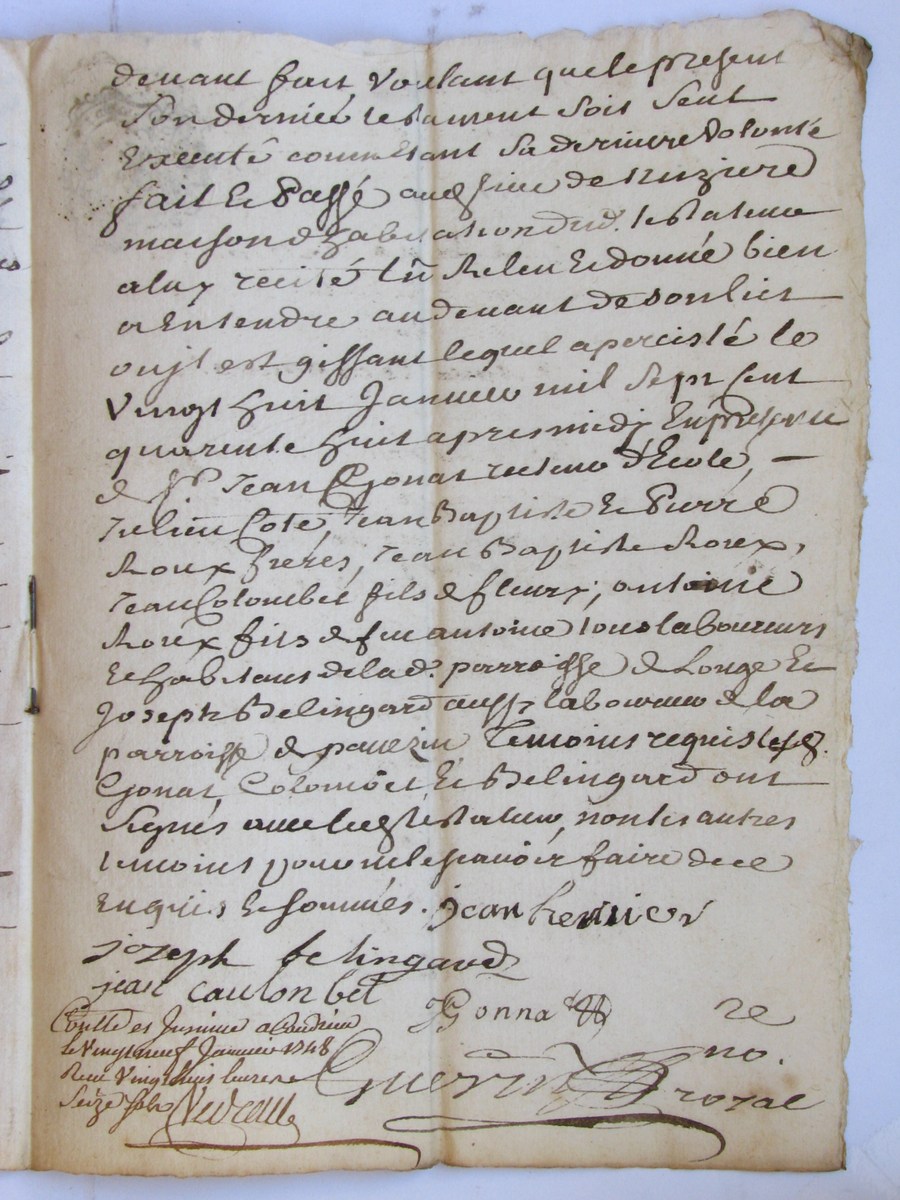 devant fait, Voulant que le present
Son dernier testament soit seul
Executé comme Etant Sa derniere Volonté
fait Et Passé au de
maison d'habitation dud. testateur
a luy recité lû Releu Et donné bien
a Entendre audevant de son lict
ou jl est gissant lequel a percisté le
Vingt huit Janvier mil Sept Cent
quarente huit apres midy En presence
de Sr. Jean Gonat recteur d'Ecole, —
Julien Coté, Jean Baptiste Et Pierre
Roux freres, Jean Baptiste Roux,
Jean Colombet fils de fleury, antoine
Roux fils de feu antoine tous laboureurs
Et habitans de lad. parroisse de Longe Et
Joseph Belingard aussy laboureur de la
parroisse de pavezin temoins requis lesq.
Gonat, Colombet Et Belingard ont
Signés avec led. testateur, non les autres
temoins pour ne le scavoir faire de ce
Enquis Et sommés. jean
jozeph belingard
jean caulonbet
JGonnat re
Contlle et Jnsinué a Condrieu
le Vingt neuf Janvier 1748
Receu Vingt huit livres
Seize sols
Guerin no.
royal